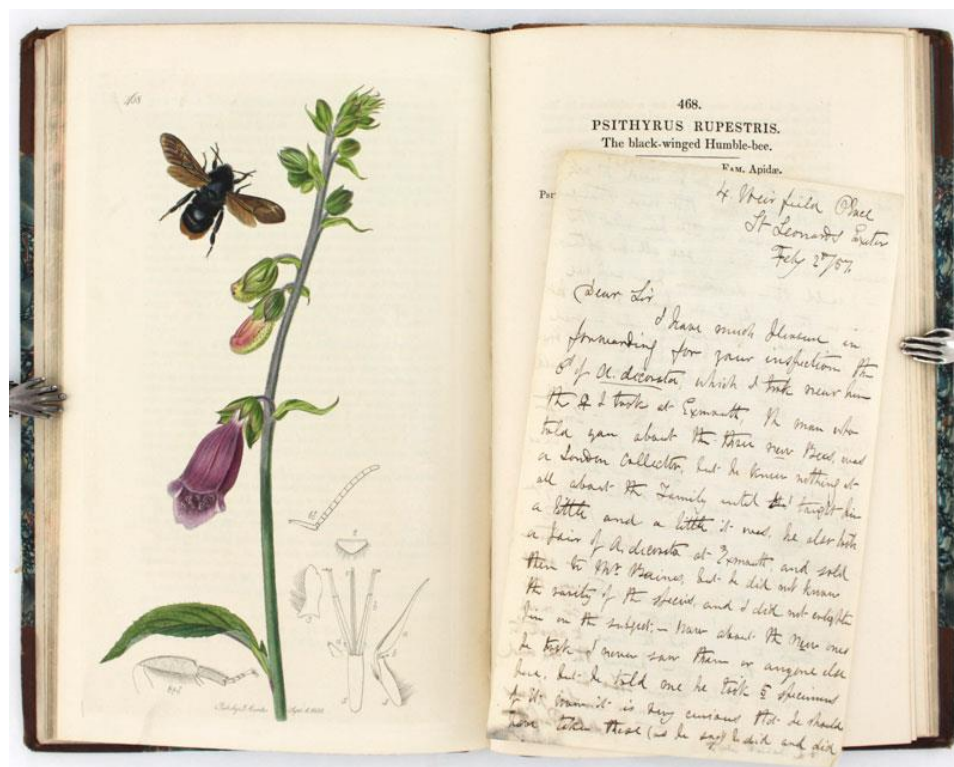 468
468.
PSITHYRUS RUPESTRIS.
The black-winged Humble-bee.
FAM. Apidæ.
4 Weirfield Place
St Leonards Exeter
Feby 2d/57
Dear Sir
I have much pleasure in
forwarding for your inspection the
♂ of A. decorata, which I took near here
the ♀ I took at Exmouth The man who
told you about the three new Bees, was
a London Collector, but he knew nothing at
all about the Family until I taught him
a little and a little it was, he also took
a pair of A. decorata at Exmouth, and sold
them to Mr Baines, but he did not know
the rarity of the species, and I did not enlighten
him on the subject, – Now about the new ones
he took I never saw them or anyone else
here, but he told me he took 5 specimens
it is very curious that he should
have taken these (as he says he did and did